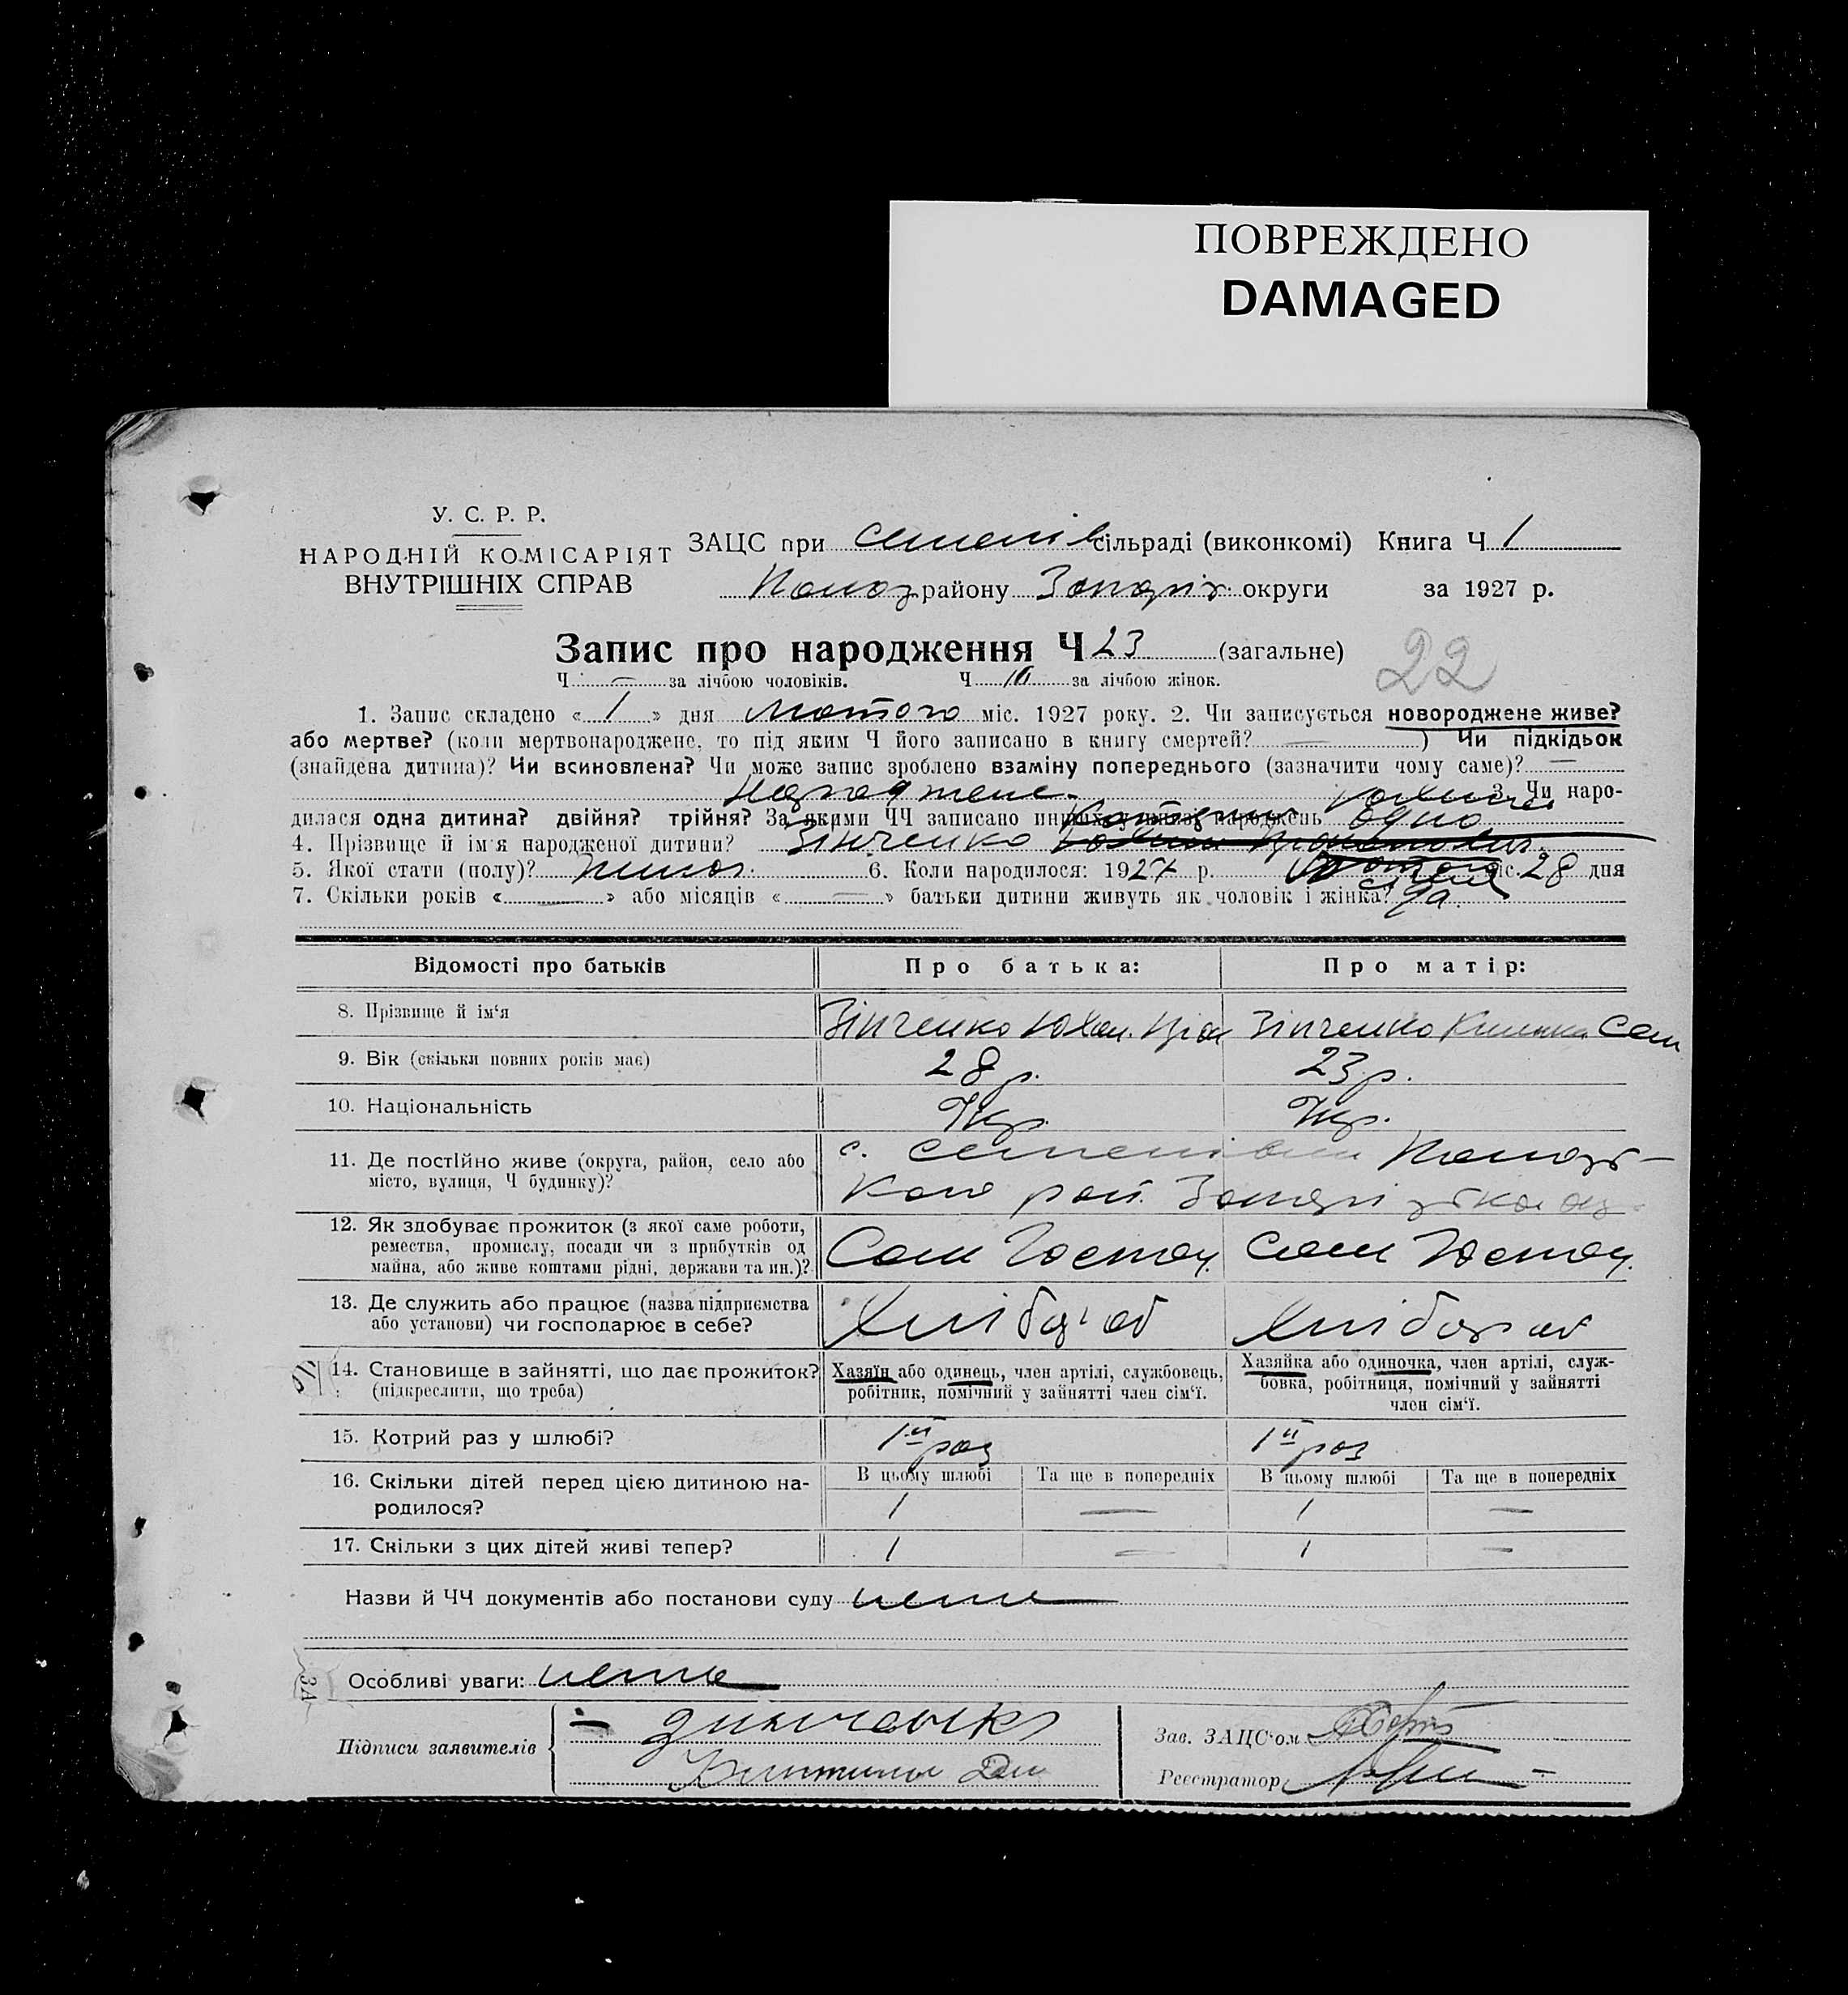 ПОВРЕЖДЕНО
DAMAGED
У. С. Р. Р.
НАРОДНІЙ КОМІСАРІЯТ
ВНУТРІШНІХ СПРАВ
ЗАЦС при Семенів сільраді (виконкомі) Книга Ч 1
Полог району Запоріз. округи за 1927 р.
Запис про народження Ч 23 (загальне)
22
Ч — за лічбою чоловіків. Ч 10 за лічбою жінок.
1. Запис складено « 1 » дня лютого міс. 1927 року. 2. Чи записується новороджене живе?
або мертве? (коли мертвонароджене, то під яким Ч його записано в книгу смертей? — ) Чи підкідьок
(знайдена дитина)? Чи всиновлена? Чи може запис зроблено взаміну попереднього (зазначити чому саме)? —
3. Чи наро-
дилася одна дитина? двійня? трійня? За якими ЧЧ записано инших у книзі народжень одно
4. Прізвище й ім'я народженої дитини? Зінченко
5. Якої стати (полу)? жіноч. 6. Коли народилося: 1927 р. січня міс. 28 дня
7. Скільки років « — » або місяців « — » батьки дитини живуть як чоловік і жінка? да.
Відомості про батьків Про батька: Про матір:
8. Прізвище й ім'я Зінченко Юхим. Зінченко Сем
9. Вік (скільки повних років має) 28 р. 23 р.
10. Національність Укр. Укр.
11. Де постійно живе (округа, район, село або
місто, вулиця, Ч будинку)?
с. Семенівки Пологів-
кого рай. Запорізької ок.
12. Як здобуває прожиток (з якої саме роботи,
ремества, промислу, посади чи з прибутків од
майна, або живе коштами рідні, держави та ин.)?
Сам Господ. Сам Господ.
13. Де служить або працює (назва підприємства
або установи) чи господарює в себе?
Хлібороб Хлібороб
14. Становище в зайнятті, що дає прожиток?
(підкреслити, що треба)
Хазяїн або одинець, член артілі, службовець,
робітник, помічний у зайнятті член сім'ї.
Хазяйка або одиночка, член артілі, служ-
бовка, робітниця, помічний у зайнятті
член сім'ї.
15. Котрий раз у шлюбі? 1й раз 1й раз
16. Скільки дітей перед цією дитиною на-
родилося?
В цьому шлюбі Та ще в попередніх В цьому шлюбі Та ще в попередніх
1 — 1 —
17. Скільки з цих дітей живі тепер? 1 — 1 —
Назви й ЧЧ документів або постанови суду нема
Особливі уваги: нема
Підписи заявителів
Зав. ЗАЦС'ом
Реєстратор